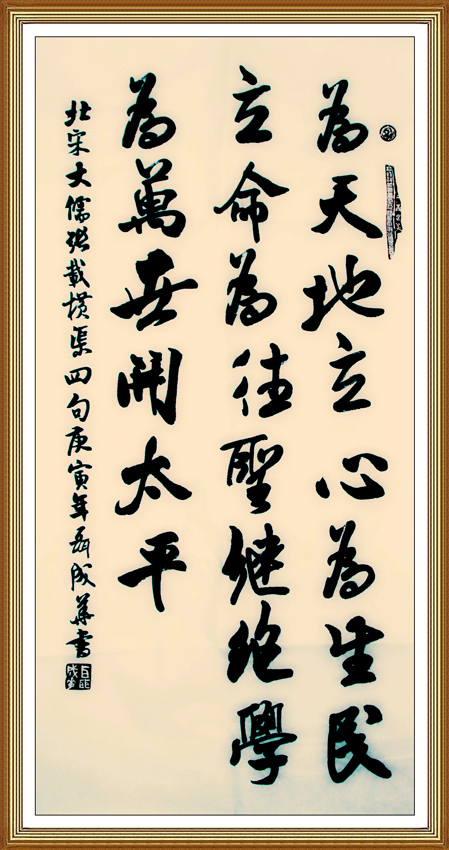 為天地立心為生民
立命為往聖继绝學
為萬世開太平
北宋大儒張載横渠四句庚寅年聶成華書